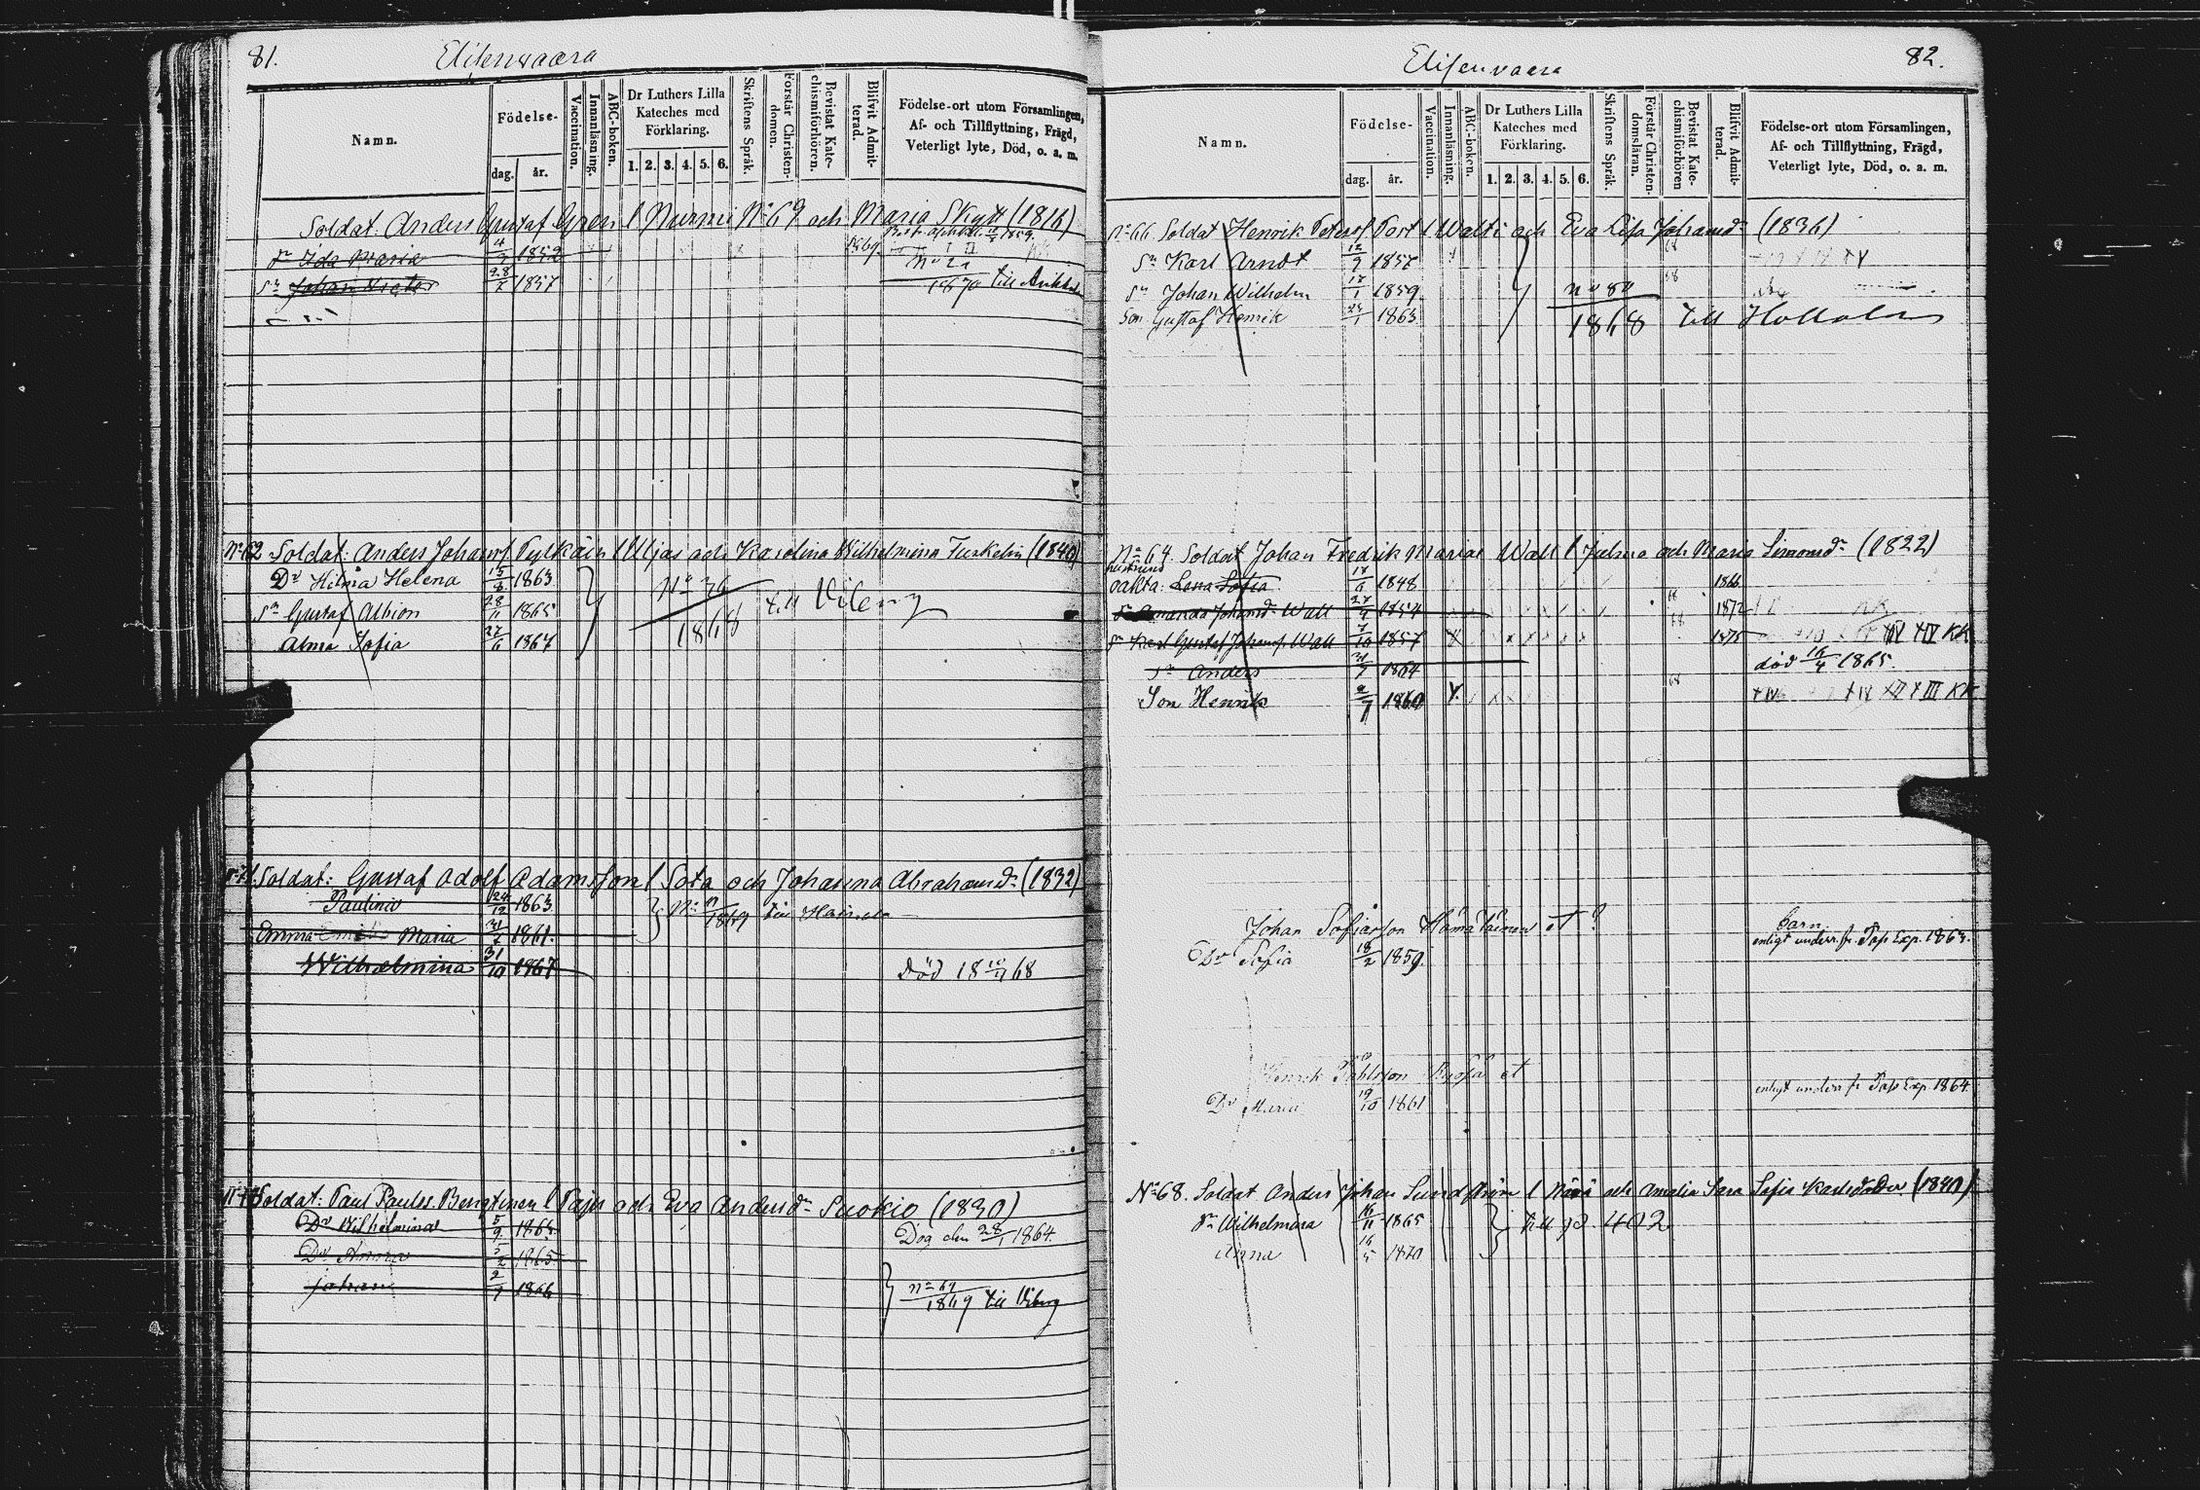 81.
Elisenvaara
Namn.
Födelse-
dag.
år.
Vaccination.
Innanläsning.
ABC-boken.
Dr Luthers Lilla
Kateches med
Förklaring.
1. 2. 3. 4. 5. 6.
Skriftens Språk.
Förstår Christen-
domen.
Bevistat Kate-
chismiförhören.
Blifvit Admit-
terad.
Födelse-ort utom Församlingen,
Af- och Tillflyttning, Frägd,
Veterligt lyte, Död, o. a. m.
Soldat Anders Gustaf Gren l Nurmi No 69 och Maria Skytt (1816)
Dr Ida Maria 4/3 1852
Sn Johan Victor 28/7 1857
No 21
1870 till
No 62 Soldat: Anders Johansf. Pylkäin l Uljas och Karolina Wilhelmina Turkelin (1840)
Dr Hilma Helena 15/8 1863
No 36
1868 till Viborg
Sn Gustaf Albion 28/11 1865
Alma Sofia 27/11 1867
Soldat: Gustaf Adolf Adamsson l Sota och Johanna Abrahamsdr (1832)
24/12 1863
No 11
1869 till
Emma Maria 21/7 1861.
Wilhelmina 31/10 1867
Död 18 10/4 68
Soldat: Paul Paulss. Bengtinen l Paju och Eva Andersdr Suokio (1830)
Dr Wilhelmina 5/9 1863
Dog den 28/1 1864.
Dr Anna 3/2 1865
Johan 2/7 1866
No 69
1869 till Viborg
82.
Elisenvaara
Namn.
Födelse-
dag.
år.
Vaccination.
Innanläsning.
ABC-boken.
Dr Luthers Lilla
Kateches med
Förklaring.
1. 2. 3. 4. 5. 6.
Skriftens Språk.
Förstår Christen-
domsläran.
Bevistat Kate-
chismiförhören
Blifvit Admit-
terad.
Födelse-ort utom Församlingen,
Af- och Tillflyttning, Frägd,
Veterligt lyte, Död, o. a. m.
No 66 Soldat Henrik Petersf. Port l Walti och Eva Lisa Johansdr (1836)
Sn Karl Arndt 12/9 1857
Sn Johan Wilhelm 17/1 1859.
Son Gustaf Henrik 24/1 1863
No 80
1868 till Hollola
No 64. Soldat Johan Fredrik Wall l Julma och Maria Simonsdr (1822)
hustruns
oäkta: Lena Sofia 17/6 1848 1866
Amanda Johansdr Wall 27/4 1854 1872
Sn Karl Gustaf Johansf. Wall 7/10 1857 1875 XIV KK
Sn Anders 21/7 1864 död 16/4 1865.
Son Henrik 2/7 1860 XII XIII KK
Johan Sofiasson Hämäläinen et ?
Barn
enligt underr. fr. Pass Exp. 1863.
Dr Sofia 18/2 1859.
Henrik Påhlsson et
enligt underr. fr. Pass Exp. 1864
Dr Maria 19/10 1861
No 68. Soldat Anders Johan Sundström l och Amalia Sara Sofia Karlsdotter (1840)
Dr Wilhelmina 16/11 1865 till p. 402.
Anna 16/5 1870